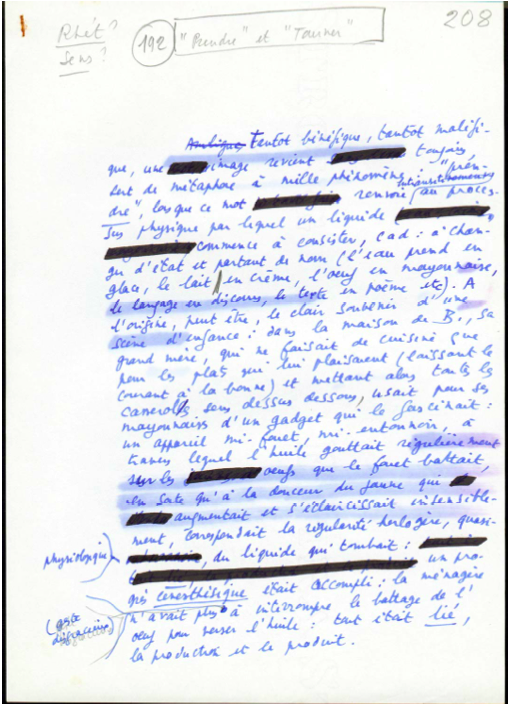 208
Rhét?
Sens?
192 "Prendre" et "Tourner"
Ambigue Tantôt bénéfique, tantôt maléfi-
que, une image revient toujours
sert de métaphore à mille phénomènes : "pren-
intransitivement
dre", lorsque ce mot renvoie au proces-
sus physique par lequel un liquide
commence à consister, càd : à chan-
ger d'état et partant de nom (l'eau prend en
glace, le lait en crème, l'oeuf en mayonnaise,
le langage en discours, le texte en poème etc). A
l'origine, peut être, le clair souvenir d'une
scène d'enfance : dans la maison de B., sa
grand mère, qui ne faisait de cuisine que
pour les plats qui lui plaisaient (laissant le
courant à la bonne) et mettant alors toutes les
casseroles sens dessus dessous, usait pour ses
mayonnaises d'un gadget qui le fascinait :
un appareil mi-fouet, mi-entonnoir, à
travers lequel l'huile gouttait régulièrement
sur les oeufs que le fouet battait,
en sorte qu'à la douceur du jaune qui
augmentait et s'éclaircissait insensible-
ment, correspondait la régularité horlogère, quasi-
physiologique
, du liquide qui tombait :
un pro-
grès cénesthésique était accompli : la ménagère
n'avait plus à interrompre le battage de l'
oeuf pour verser l'huile : tout était lié,
la production et le produit.